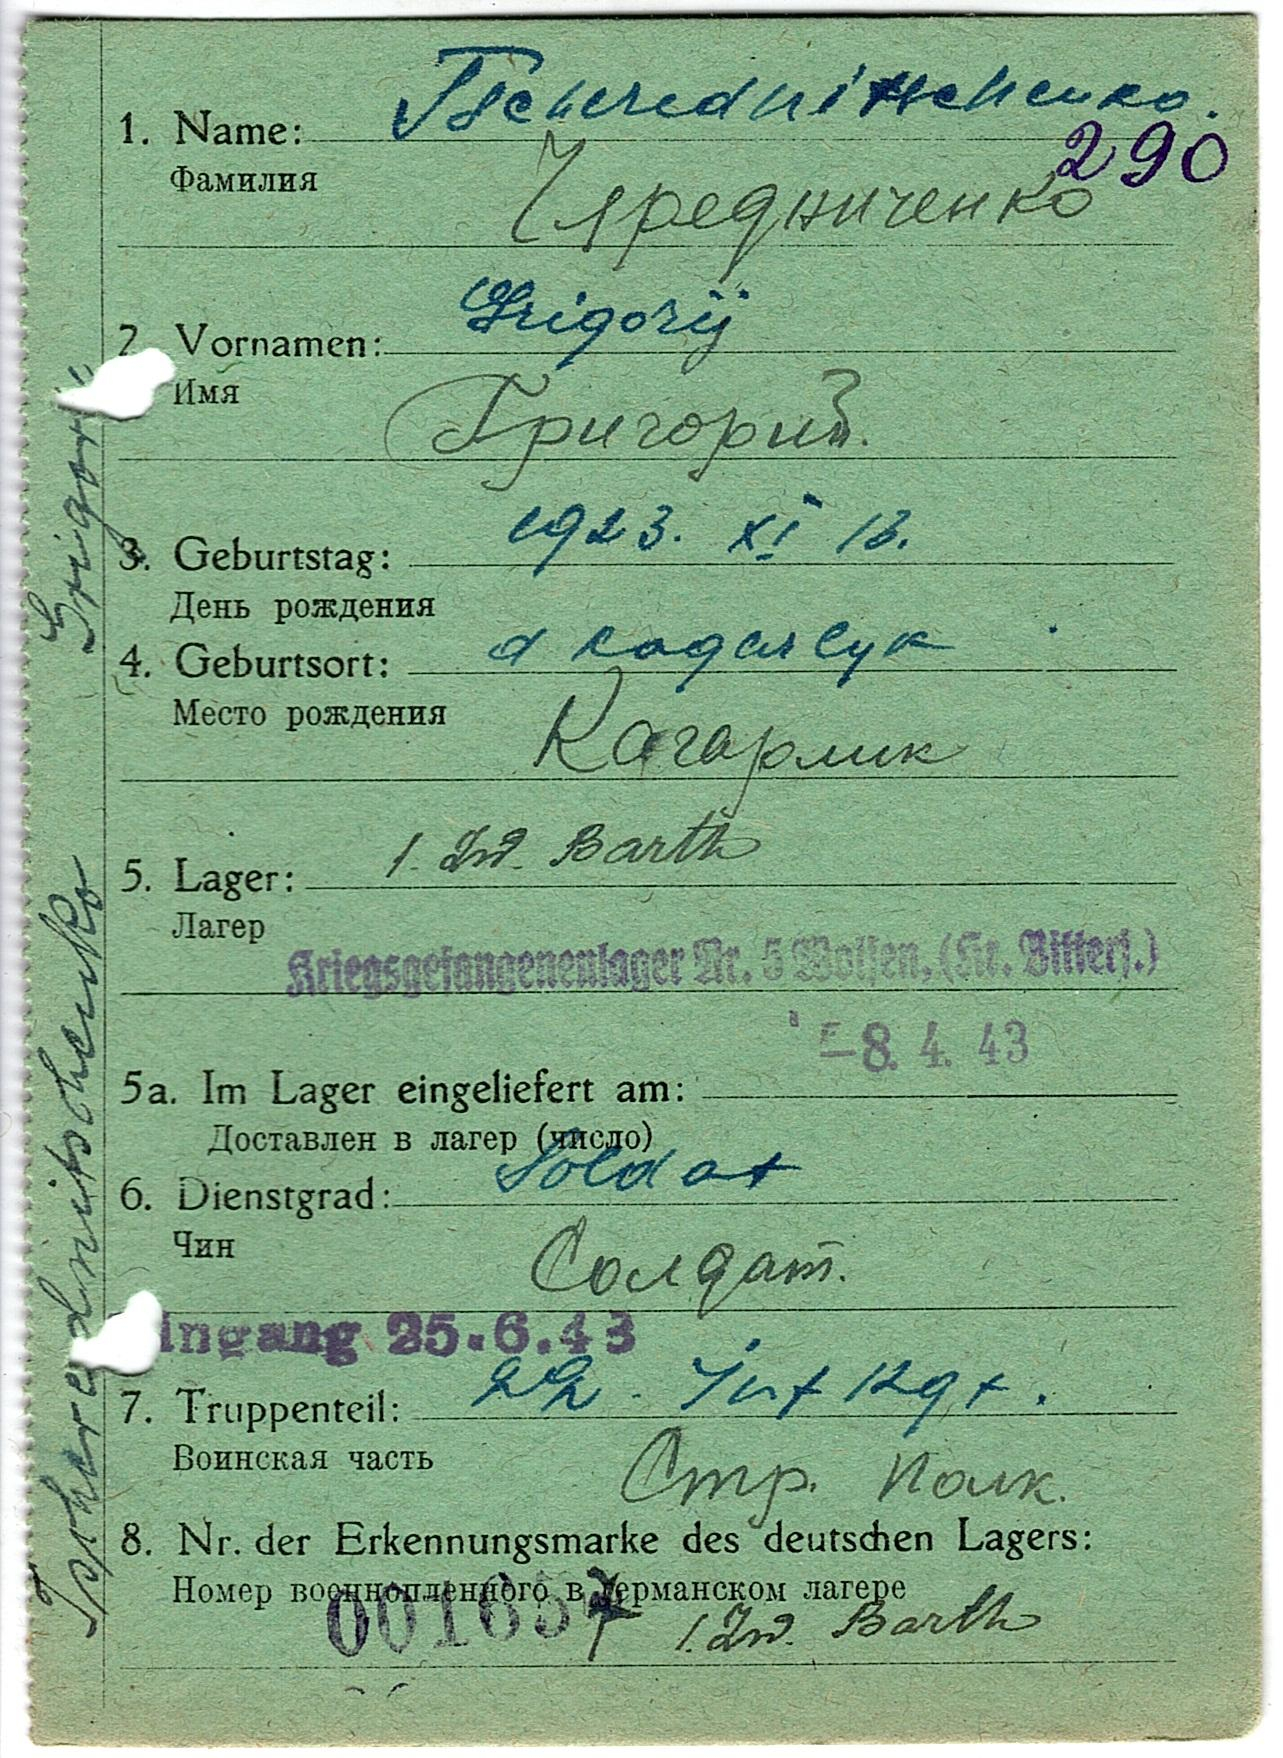 1. Name: Tscherednitschenko.
290
Фамилия Чяредниченко
2. Vornamen: Grigorij
Имя
Григорий.
3. Geburtstag: 1923. XI 13.
День рождения
4. Geburtsort: d Kagarlyk
Место рождения
Кагарлик
5. Lager: 1. Barth
Лагер
Kriegsgefangenenlager Nr. 5 Wolfen, (Kr. Bitterf.)
-8. 4. 43
5a. Im Lager eingeliefert am:
Доставлен в лагер (число)
6. Dienstgrad: Soldat
Чин
Солдат.
ingang 25.6.43
7. Truppenteil: Inf Rgt.
Воинская часть
Стр. полк.
8. Nr. der Erkennungsmarke des deutschen Lagers:
Номер военнопленного в германском лагере
001657 1. Barth
Tscherednitschenko Grigorij